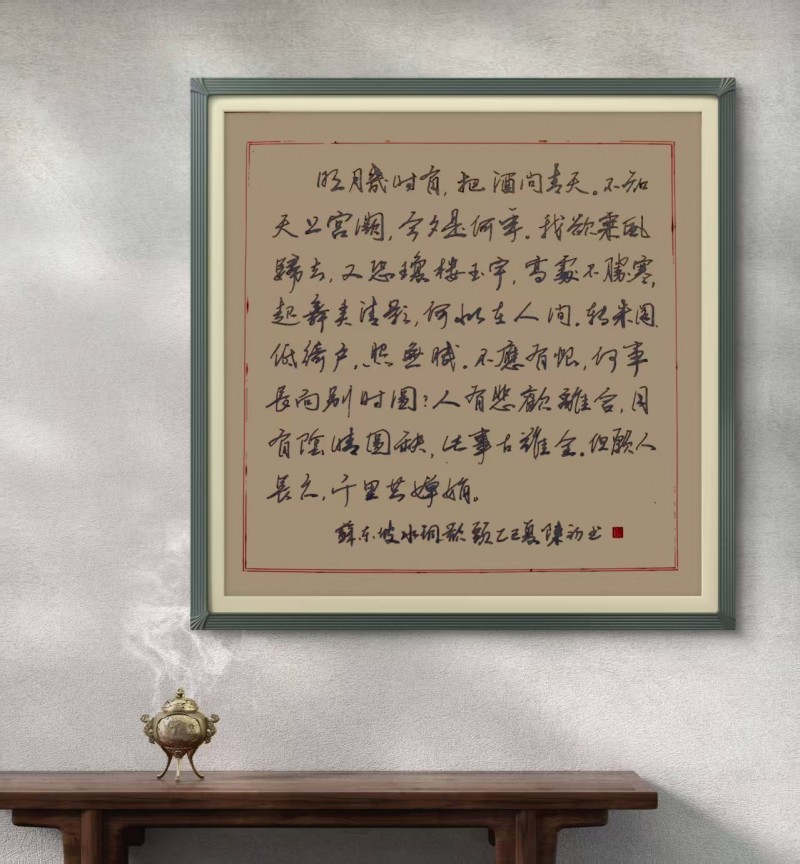 明月幾时有,把酒问青天。不知
天上宫阙,今夕是何年。我欲乘风
歸去,又恐瓊楼玉宇,高處不勝寒,
起舞弄清影,何似在人间。转朱阁,
低绮户,照無眠。不應有恨,何事
長向别时圆?人有悲歡離合,月
有陰晴圆缺,此事古難全。但願人
長久,千里共嬋娟。
蘇东坡水调歌頭乙巳夏陳初书